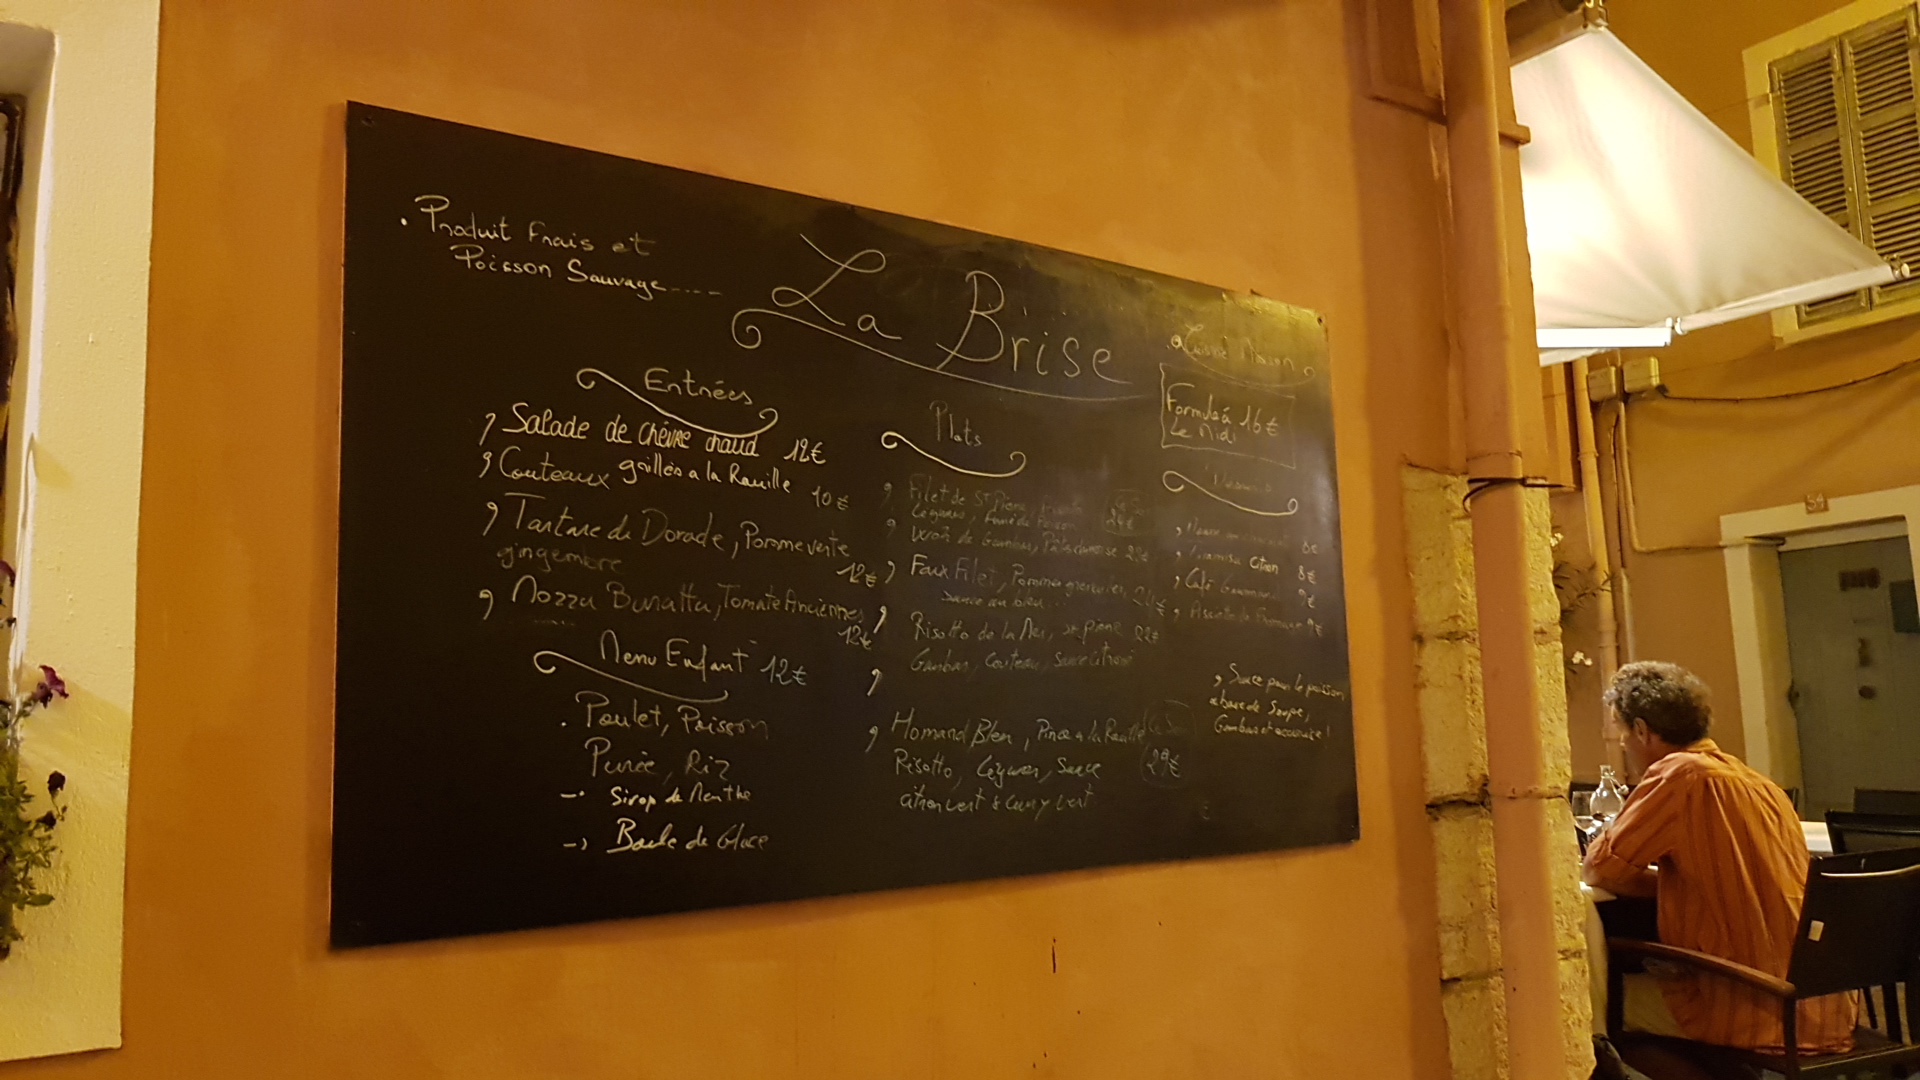 . Produit Frais et
Poisson Sauvage....
La Brise
Entrées
Salade de chèvre chaud 12€
Couteaux grillés a la Rouille
10€
Tartare de Dorade, Pomme verte
gingembre
12€
Mozza Buratta, Tomate Anciennes
12€
Menu Enfant 12€
. Poulet, Poisson
Purée, Riz
Sirop de Menthe
Boule de Glace
Plats
Filet de St Pierre,
Légumes,
de Gambas, 22€
Faux Filet, Pommes grenailles, 24€
Sauce au bleu...
Risotto de la Mer, St pierre 22€
Gambas, Couteau, Sauce citronné
Homard Bleu, Pince a la Rouille
Risotto, Légumes, Sauce 29€
citron vert & Curry vert
Formule à 16€
Le Midi
6€
Tiramisu Citron 8€
Café Gourmand 9€
Assiette de Fromage 9€
Sauce pour le poisson
a base de Soupe,
Gambas et
51